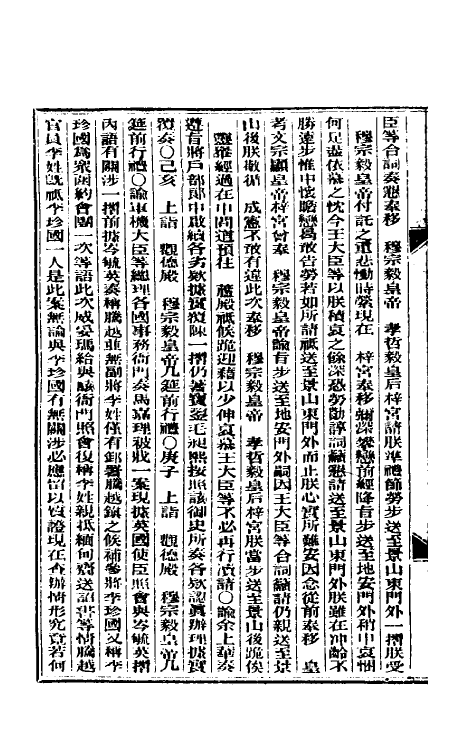 臣等合詞奏懇奉移　穆宗毅皇帝　孝哲毅皇后梓宮請朕準禮節勞步送至景山東門外一摺朕受
穆宗毅皇帝付託之重悲慟時縈現在　梓宮奉移彌深攀戀前經降旨步送至地安門外稍申哀悃
何足盡依慕之忱今王大臣等以朕積哀之餘深恐勞勩諄詞籲懇請送至景山東門外朕雖在沖齡不
勝遠步惟中懷瞻戀曷敢告勞若如所請祗送至景山東門外而止朕心實所難安因念從前奉移　皇
考文宗顯皇帝梓宮曾奉　穆宗毅皇帝諭旨步送至地安門外嗣因王大臣等合詞籲請仍親送至景
山後朕敬循　成憲不敢有違此次奉移　穆宗毅皇帝　孝哲毅皇后梓宮朕當步送至景山後跪俟
靈輿經過在中間道預往　蘆殿祗候跪迎藉以少伸哀慕王大臣等不必再行瀆請〇諭余上華奏
遵旨將戶部郎中啟續各劣款據實覆陳一摺仍著寶鋆毛昶熙按照該御史所奏各款認眞辦理據實
覆奏〇己亥　上詣　觀德殿　穆宗毅皇帝几筵前行禮〇庚子　上詣　觀德殿　穆宗毅皇帝几
筵前行禮〇諭軍機大臣等總理各國事務衙門奏馬嘉理被戕一案現據英國使臣照會與岑毓英摺
內語有關涉一摺前據岑毓英奏稱騰越並無副將李姓僅有卸署騰越鎮之候補參將李珍國又稱李
珍國爲眾商約會團一次等語此次威妥瑪給與該衙門照會復稱李姓親抵緬甸齎送詔書等情騰越
官員李姓旣祗李珍國一人是此案無論與李珍國有無關涉必應留以質證現在查辦情形究竟若何